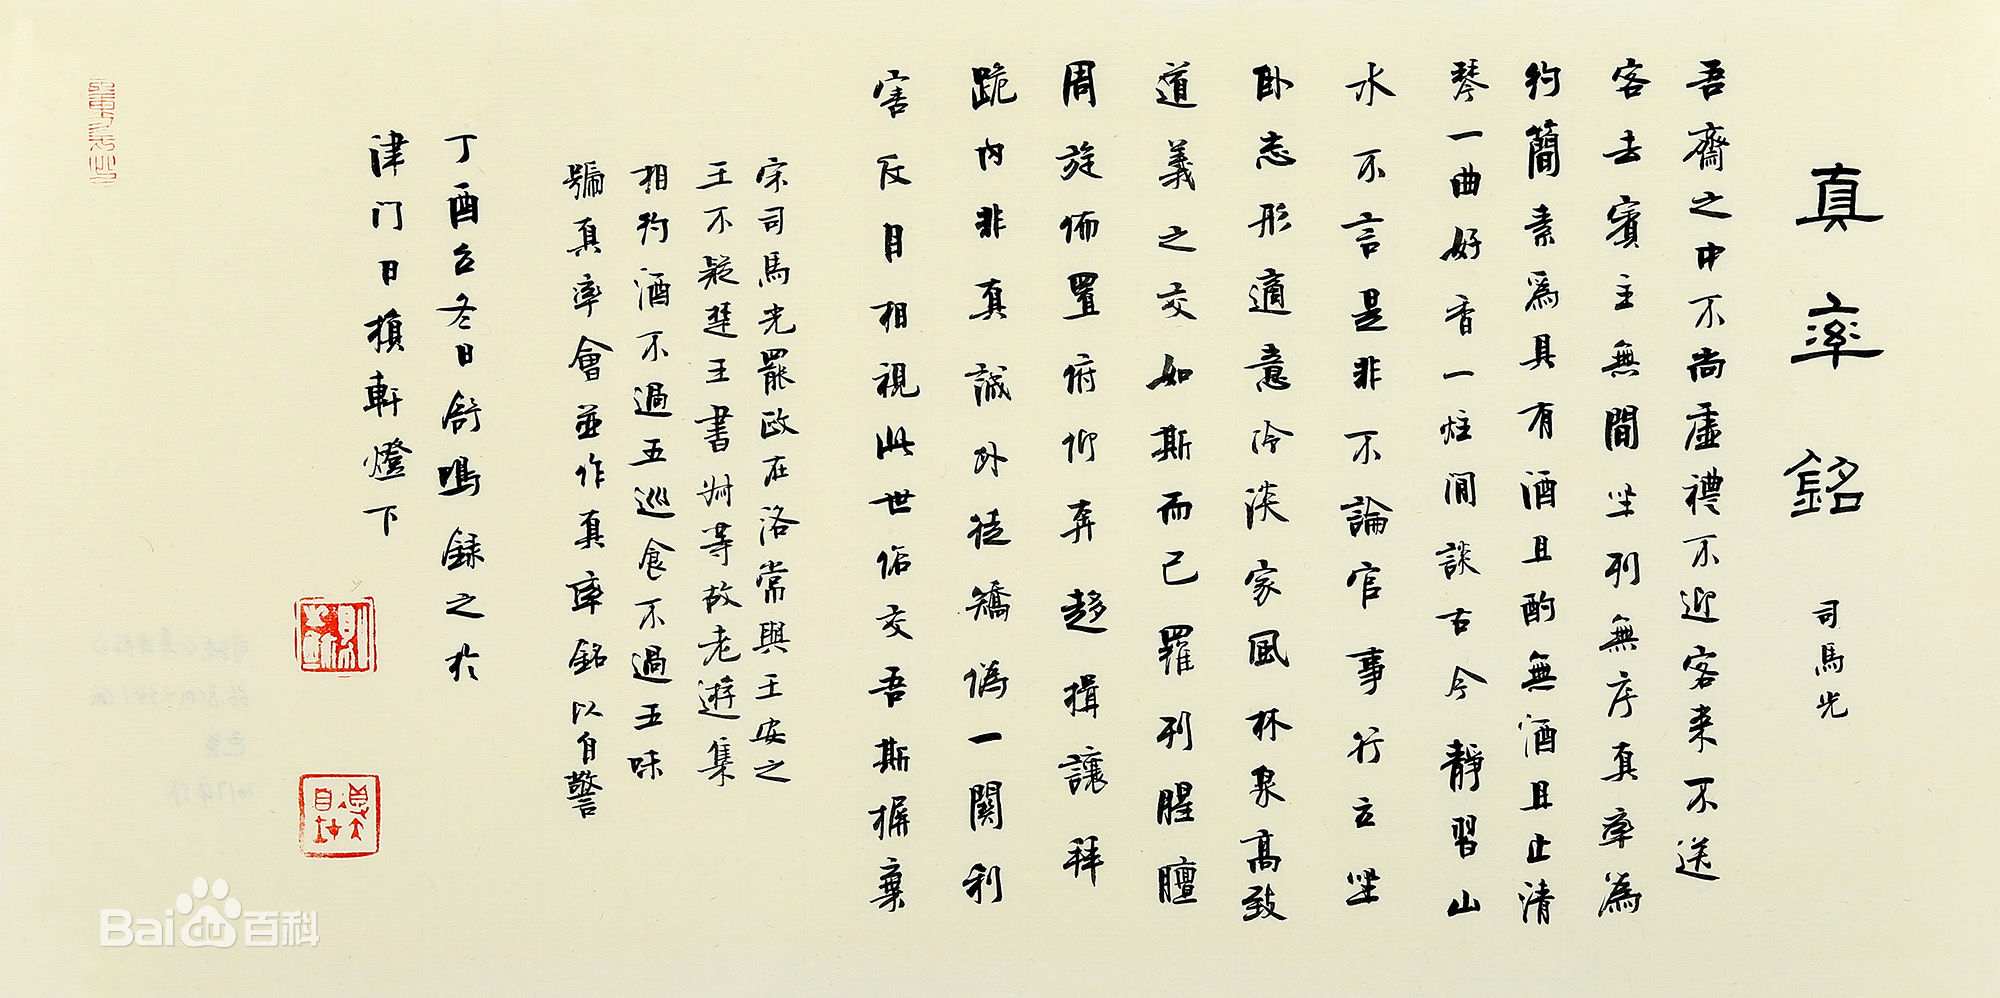 真率銘
司馬光
吾齋之中不尚虛禮不迎客来不送
客去賓主無間坐列無序真率為
約簡素為具有酒且酌無酒且止清
琴一曲好香一炷閒談古今靜習山
水不言是非不論官事行立坐
卧忘形適意冷淡家風林泉高致
道義之交如斯而已羅列腥膻
周旋佈置俯仰奔趨揖讓拜
跪内非真誠外徒矯偽一關利
害反目相視此世俗交吾斯摒棄
宋司馬光罷政在洛常與王安之
王不疑楚王書州等故老遊集
相約酒不過五巡食不過五味
號真率會並作真率銘以自警
丁酉冬日舒鳴録之於
津门日損軒燈下
Bai百科